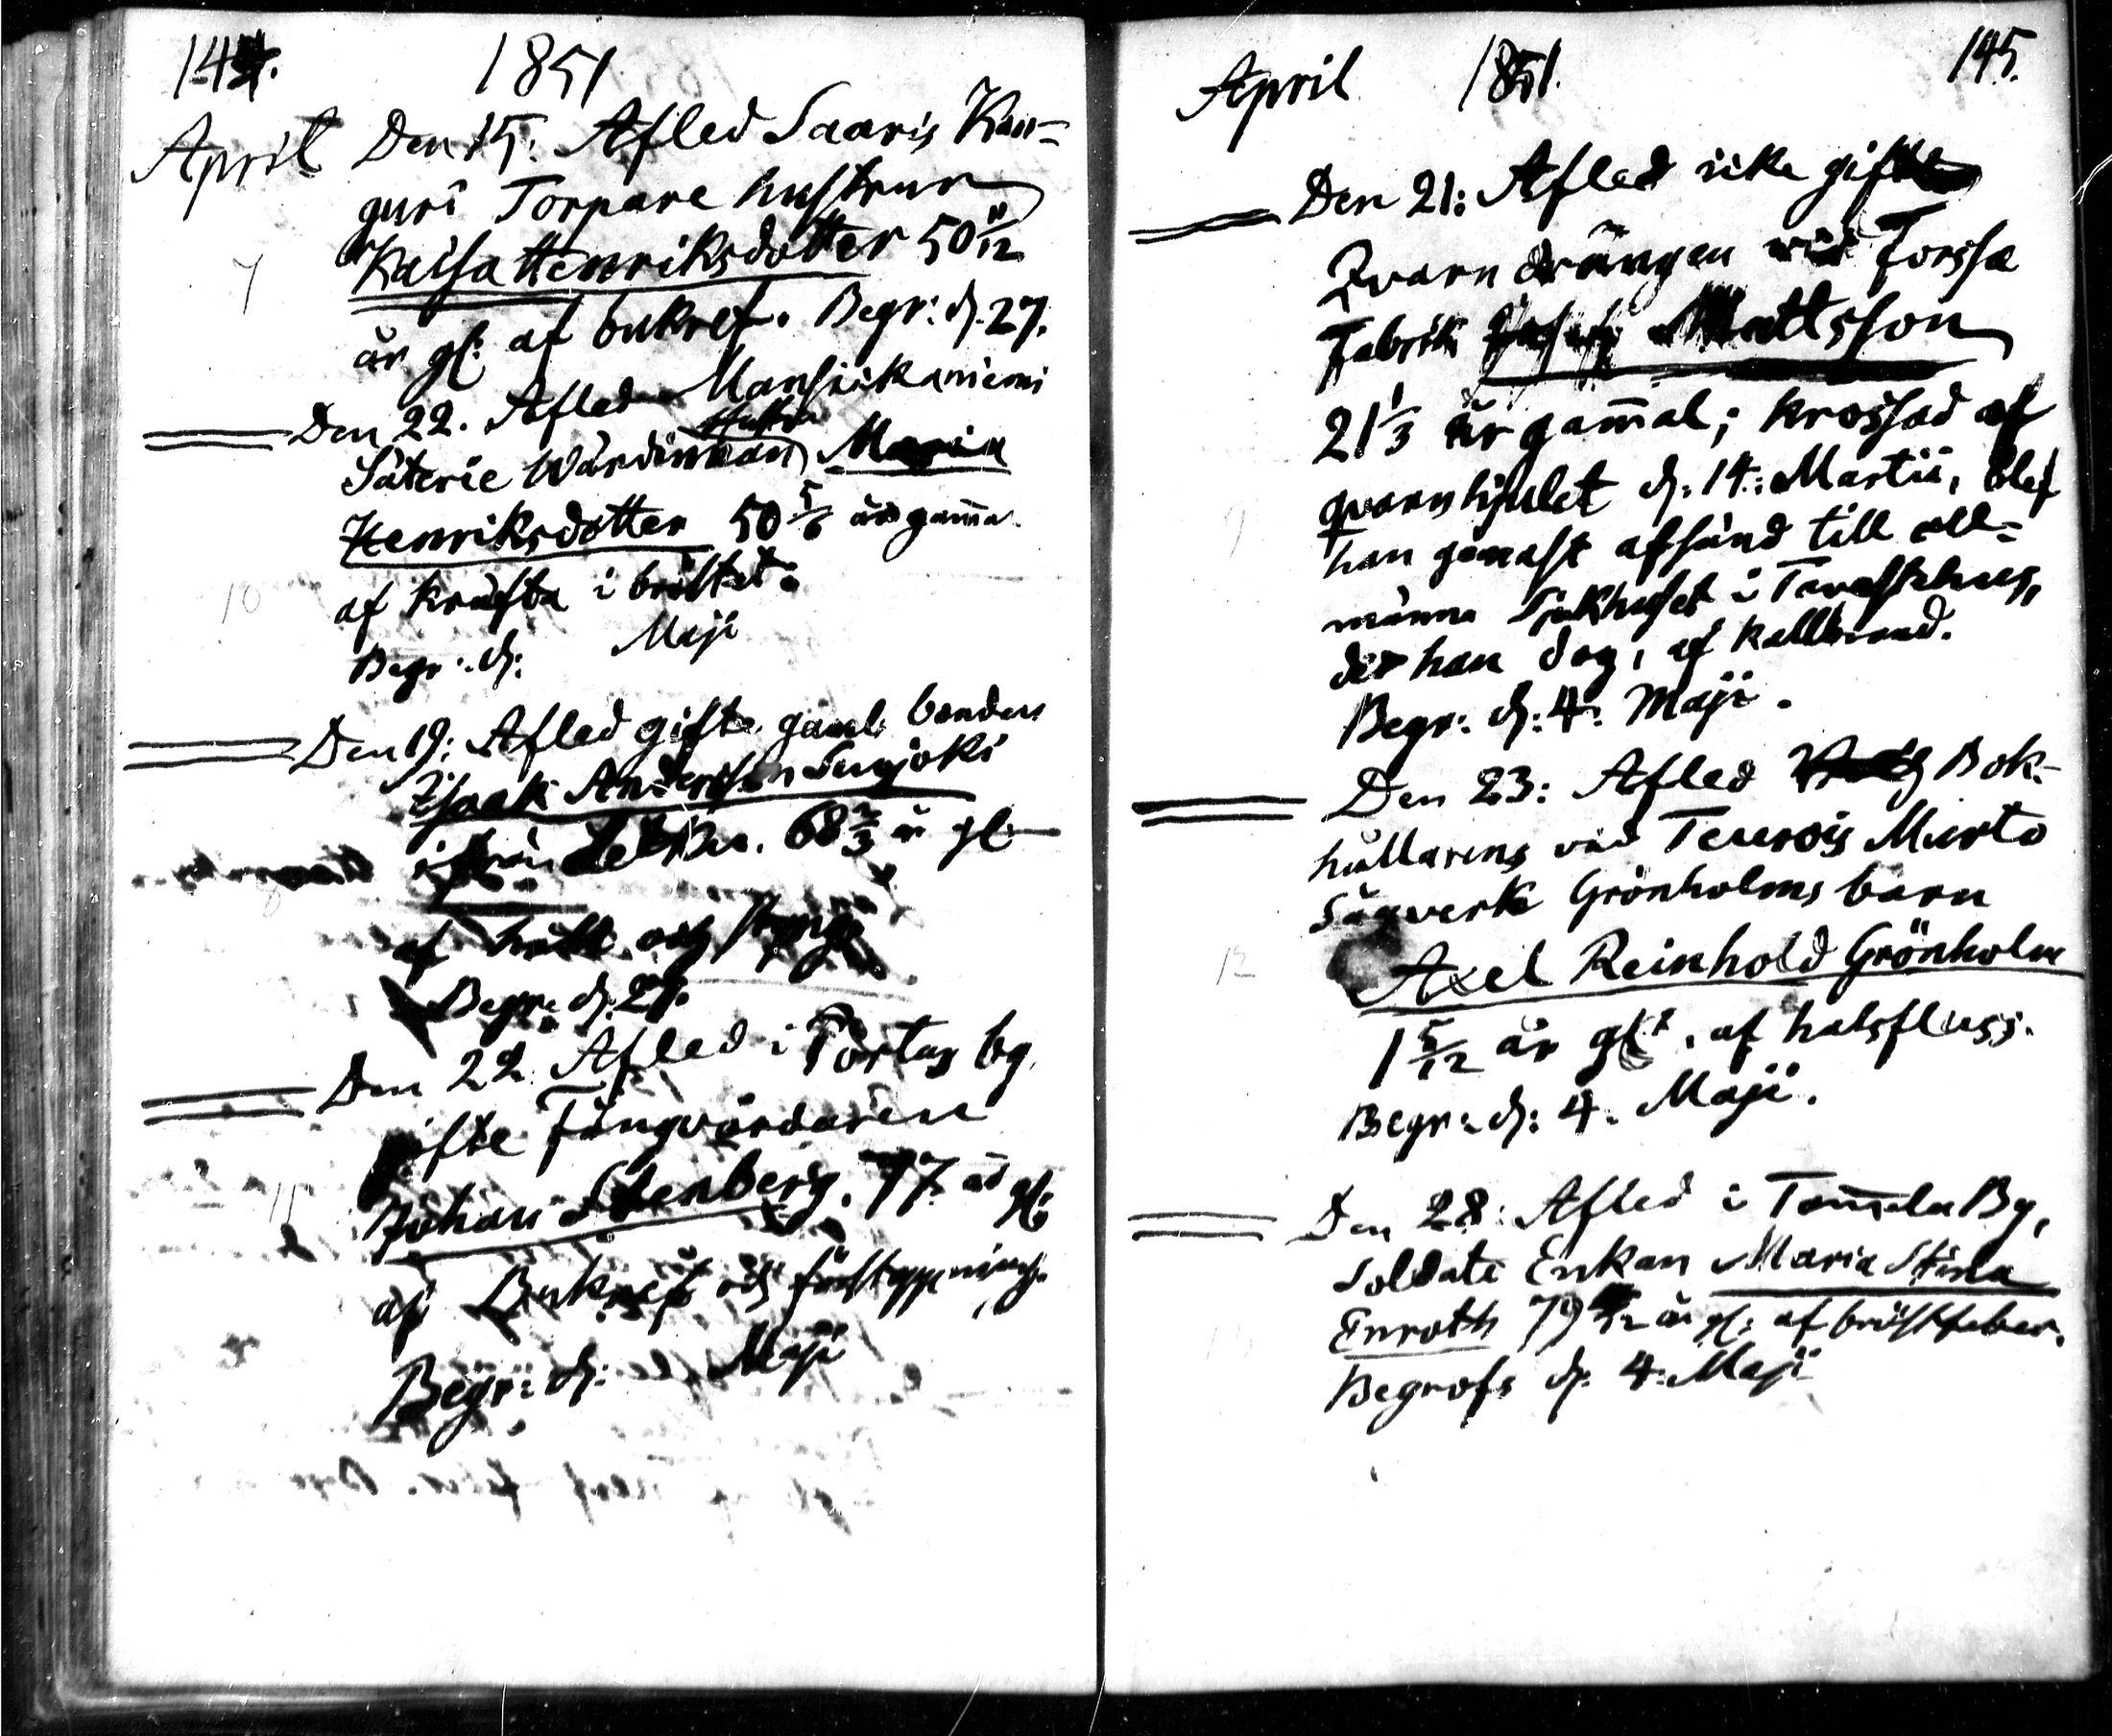 144. 1851
April Den 15: Afled Saaris Kan-
guri Torpare hustrun
Kaisa Henriksdotter 50 11/12
7
år gl: af bukref. Begr: d. 27.
Den 22. Afled Mansikkaniemi
Säterie Wärdinnan Maria
Henriksdotter 50 5/6 år gam̄al
af kräfta i bröstet.
10
Begr: d: Maji
Den 19: Afled gifte gaml. bonden
Isaak Andersson Suojoki
ifrån 68 2/3 år gl
af och
Begr: d: 27.
Den 22 Afled i Portas by
gifte Fångvårdaren
Johan Stenberg. 77 år gl:
11
af Bukref och förstoppning.
Begr: d: Maji
April 1851. 145.
Den 21: Afled icke gifte
Qvarn drängen vid Forssa
Fabrik Mattsson
21 1/3 år gam̄al; krossad af
qvarnhjulet d: 14: Martii, blef
9
han genast afsänd till all-
männa Sjukhuset i Tavastehus,
der han dog, af kallbrand.
Begr: d: 4: Maji.
Den 23: Afled Bok-
hållarens vid Teurois Murto
Sågverk Grönholms barn
Axel Reinhold Grönholm
12
1 5/12 år gl:, af halsfluss.
Begr: d: 4. Maji.
Den 28: Afled i Tam̄ela By,
Soldats Enkan Maria Stina
Enroth 79 år gl: af bröstfeber.
Begrofs d: 4: Maji